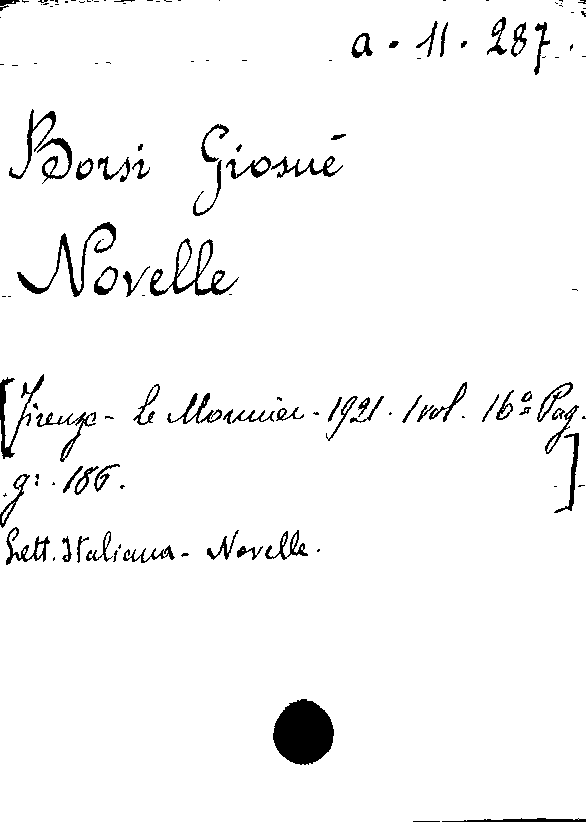 a. 11. 287.
Borsi Giosuè
Novelle
[Firenze - Le Monnier - 1921. 1 vol. 16° Pag.
g: 186.]
Lett. Italiana - Novelle.